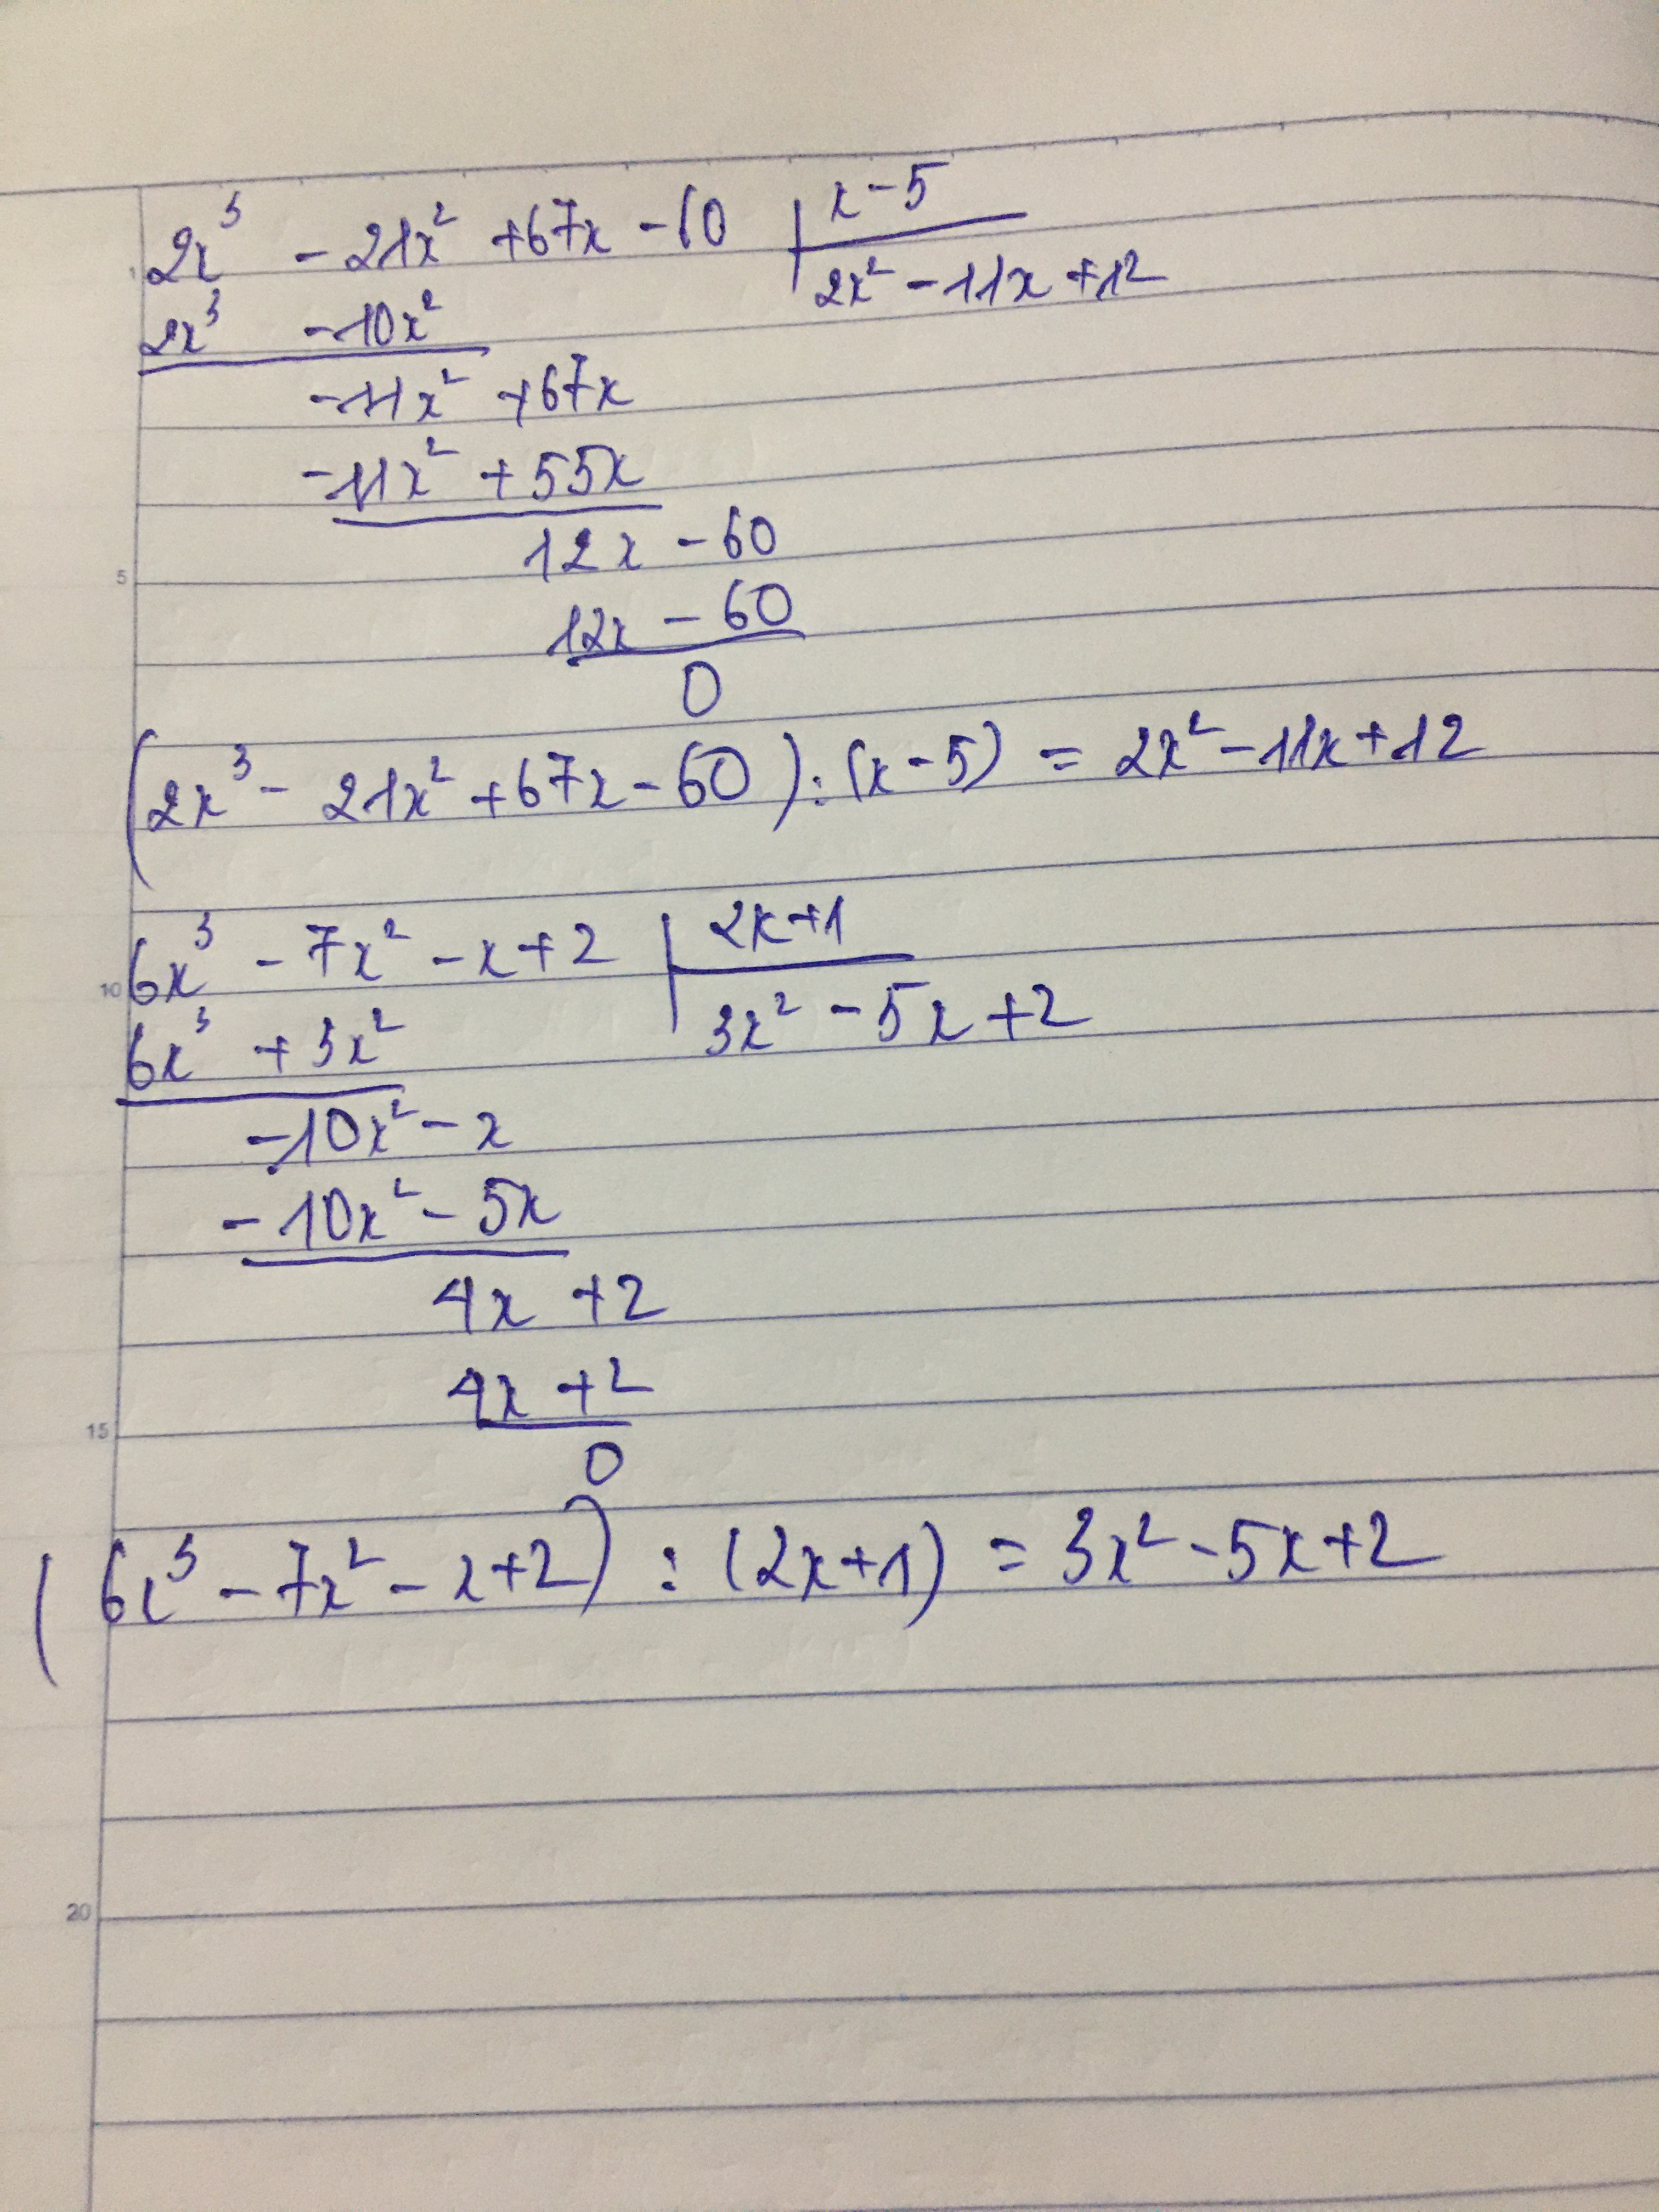 2x³ - 21x² + 67x - 60 | x - 5
2x³ - 10x² | 2x² - 11x + 12
-11x² + 67x
-11x² + 55x
12x - 60
12x - 60
0
(2x³ - 21x² + 67x - 60) : (x - 5) = 2x² - 11x + 12
6x³ - 7x² - x + 2 | 2x + 1
6x³ + 3x² | 3x² - 5x + 2
-10x² - x
-10x² - 5x
4x + 2
4x + 2
0
(6x³ - 7x² - x + 2) : (2x + 1) = 3x² - 5x + 2
1
5
10
15
20